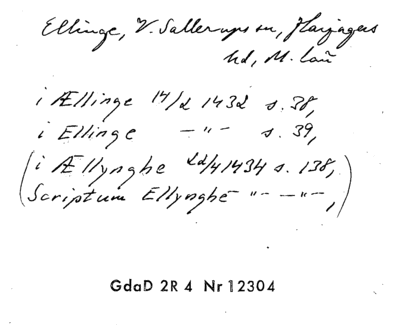 Ellinge, V. Sallerups sn, Harjagers
hd, M. län
i Ællinge 14/2 1432 s. 38,
i Ellinge —"— s. 39,
(i Ællynghe 22/4 1434 s. 138,
Scriptum Ellynghe —"— —"—,)
GdaD 2R 4 Nr 12304